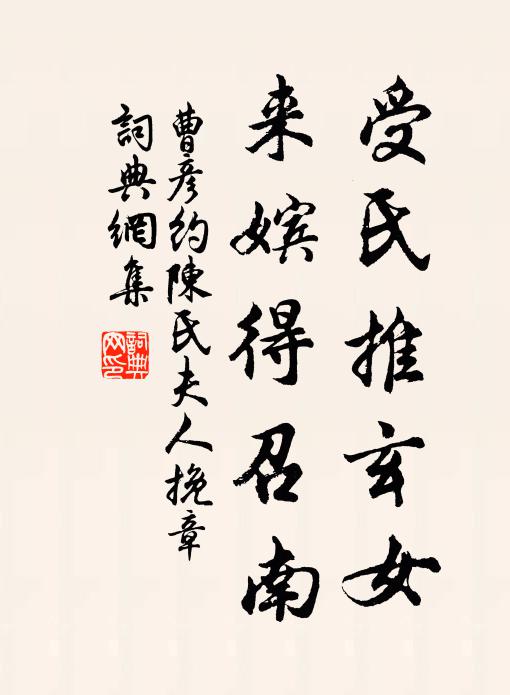 受氏推玄女
来嬪得召南
曹彦約陳氏夫人挽章
詞典網集
詞典网印